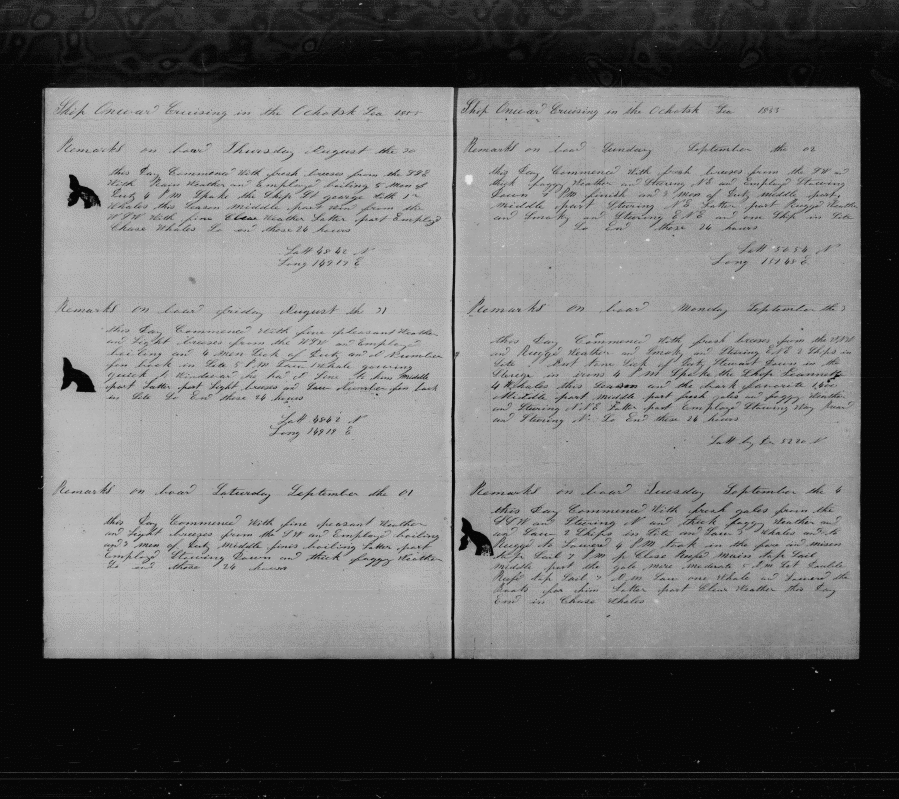 Ship Onward Cruising in the Ochotsk Sea 1855
Remarks on board Thursday August the 30
this Day Commenced With fresh breses from the SSE
With Rain Weather and Employd boiling 5 Men of
Duty 4 P M Spoke the Ship St george With
Whales this Season Middle part Wind from the
WSW With fine Clear Weather Latter part Employd
Chase Whales So end these 24 hours
Latt 48 42 N
Long 149 19 E
Remarks on board friday August th 31
this Day Commenced With fine pleasant Weather
and Light breeses from the WSW and Employd
boiling and 4 Men Sick of Duty and a Number
for back in Site 5 P M Saw Whale
part Latter part Light breeses and Saw for back
in Site So End these 24 hours
Latt 48 42 N
Long 149 19 E
Remarks on board Saturday September the 01
this Day Commenced With fine peasant Weather
and Light breeses from the SW and Employd boiling
and 3 Men of Duty Middle fines boiling Latter part
Employd Stowing Down and thick foggy Weather
So End these 24 hours
Ship Onward Cruising in the Ochotsk Sea 1855
Remarks on board Sunday September the 02
this Day Commenced With fresh breses from the SW and
thick foggy Weather and Stering NE and Employd Stowing
Down 7 P M finish and 2 Men of Duty Middle part
Middle part Stering NE Latter part Rugged Weather
and Smoky and Stering ENE and one Ship in Site
So End these 24 hours
Latt 50 54 N
Long 151 48 E
Remarks on board Monday September the 3
this Day Commenced With fresh breses from the
and Rugged Weather and Smoky and Stering ENE 2 Ships in
Site of Duty Steward
4 P M Spoke the Ship
4 Whales this Season and the
Middle part Middle part fresh gales and foggy Weather
and Stering NNE Latter part Employd Stowing Way
and Stering N So End these 24 hours
Latt by 52 20 N
Remarks on board Tuesday September the 4
this Day Commenced With fresh gales from the
SSW and Stering N and thick foggy Weather and
and Saw 2 Ships in Site and Saw 3 Whales and to
Rugged to Lowerd 4 P M took in the fore and missen
top Sail 7 P M Close Reefd Main top Sail
Middle part the gale more moderate A M Set Double
Reefd top Sail 7 A M Saw one Whale and Lowerd the
Boats for him Latter part Clear Weather this Day
End in Chase Whales